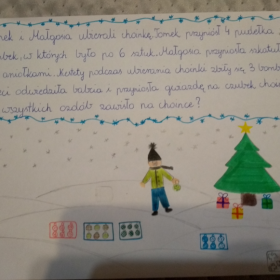 mek i Małgosia ubierali choinkę. Tomek przyniósł 4 pudełka z
bek, w których było po 6 sztuk. Małgosia przyniosła
aniołkami. podczas ubierania choinki zbiły się 3 bomb
ci odwiedziła babcia i przyniosła gwiazdę na czubek choi
wszystkich ozdób zawisło na choince?